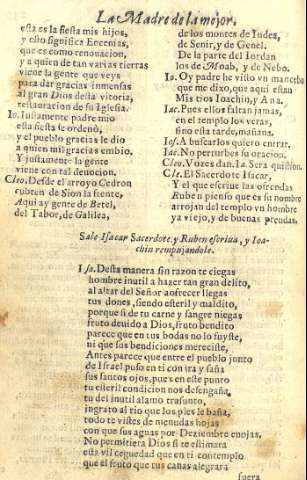 La Madre de la mejor,
esta es la fiesta mis hijos,
y esto significa Ercenias,
que es como renouacion,
y a quien de tan varias tierras
viene la gente que veys
para dar gracias inmensas
al gran Dios desta vitoria,
restauracion de su Iglesia.
Io. Iustamente padre mio
esta fiesta se ordenò,
y el pueblo gracias le dio
a quien mil gracias embio,
Y justamente la gente
viene con tal deuocion.
Cleo. Desde el arroyo Cedron
rubren de Sion la fuente,
Aqui ay gente de Betel,
del Tabor, de Galilea,
de los montes de Iudea,
de Senir, y de Genel.
De la parte del Iordan
los de Moab, y de Nebo.
Io. Oy padre he visto vn mancebo
que me dixo, que aqui estan
Mis tios Ioachin, y Ana.
Iac. Pues ellos faltan jamas,
en el templo los veras,
sino esta tarde, mañana.
Ios. A buscarlos quiero entrar.
Iac. No perturbes su oracion.
Cleo. Voces dan. Ia. Sera quistion
Cle. El Sacerdote Isacar,
Y el que escriue las ofrendas
Ruben pienso que es su nombre
arrojan del templo vn hombre
ya viejo, y de buenas prendas.
Sale Isacar Sacerdote, y Ruben escriua, y Ioachin rempujandole.
Isa. Desta manera sin razon te ciegas
hombre inutil a hazer tan gran delito,
al altar del Señor a ofrecer llegas
tus dones, siendo esteril y maldito,
porque si de tu carne y sangre niegas
fruto deuido a Dios, fruto bendito
parece que en tus bodas no lo fuyste,
ni que sus bendiciones mereciste,
Antes parece que entre el pueblo junto
de Israel puso en ti con ira y saña
sus santos ojos, pues en este punto
tu esteril condicion nos desengaña,
tu del inutil alamo trasunto,
ingrato al rio que los pies le baña,
todo te vistes de menudas hojas
con que sus aguas por Deziembre enojas.
No permitiera Dios si te estimara
esta vil ceguedad que en ti contemplo
que el fruto que tus canas alegrara
fuera